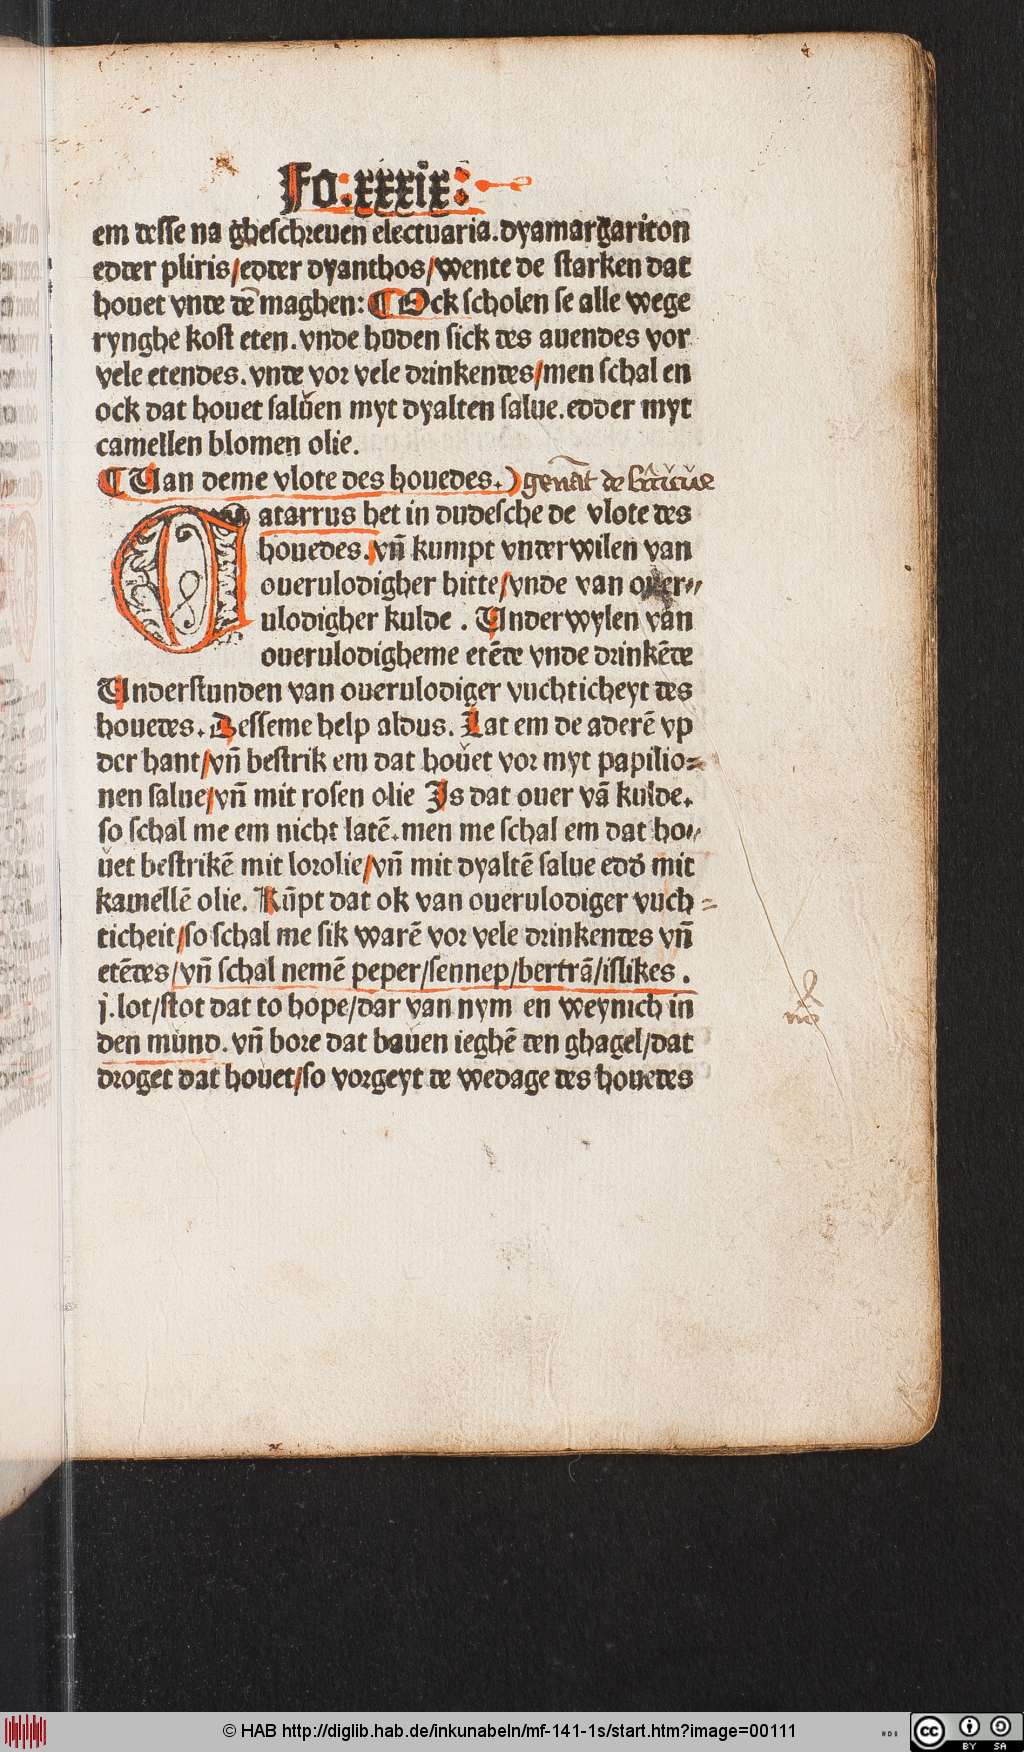 Fo.xxxix:
em desse na gheschreuen electuaria.dyamargariton
edder pliris/edder dyanthos/wente de starken dat
houet vnde dē maghen: ¶ Ock scholen se alle wege
rynghe kost eten.vnde huden sick des auendes vor
vele etendes.vnde vor vele drinkendes/men schal en
ock dat houet saluen myt dyalten salue.edder myt
camellen blomen olie.
¶ Uan deme vlote des houedes. genāt de
Catarrus het in dudesche de vlote des
houedes.vn̄ kumpt vnderwilen van
ouerulodigher hitte/vnde van ouer⸗
ulodigher kulde. Underwylen van
ouerulodigheme etēde vnde drinkēde
Understunden van ouerulodiger vuchticheyt des
houedes. Desseme help aldus. Lat em de aderē vp
der hant/vn̄ bestrik em dat houet vor myt papilio⸗
nen salue/vn̄ mit rosen olie Is dat ouer vā kulde.
so schal me em nicht latē.men me schal em dat ho⸗
uet bestrikē mit lorolie/vn̄ mit dyaltē salue edd' mit
kamellē olie. Kūpt dat ok van ouerulodiger vuch⸗
ticheit/so schal me sik warē vor vele drinkendes vn̄
etēdes/vn̄ schal nemē peper/sennep/bertrā/islikes.
j.lot/stot dat to hope/dar van nym en weynich in
den mund.vn̄ bore dat bauen ieghē den ghagel/dat
droget dat houet/so vorgeyt de wedage des houedes
© HAB http://diglib.hab.de/inkunabeln/mf-141-1s/start.htm?image=00111
HDB
CC BY SA